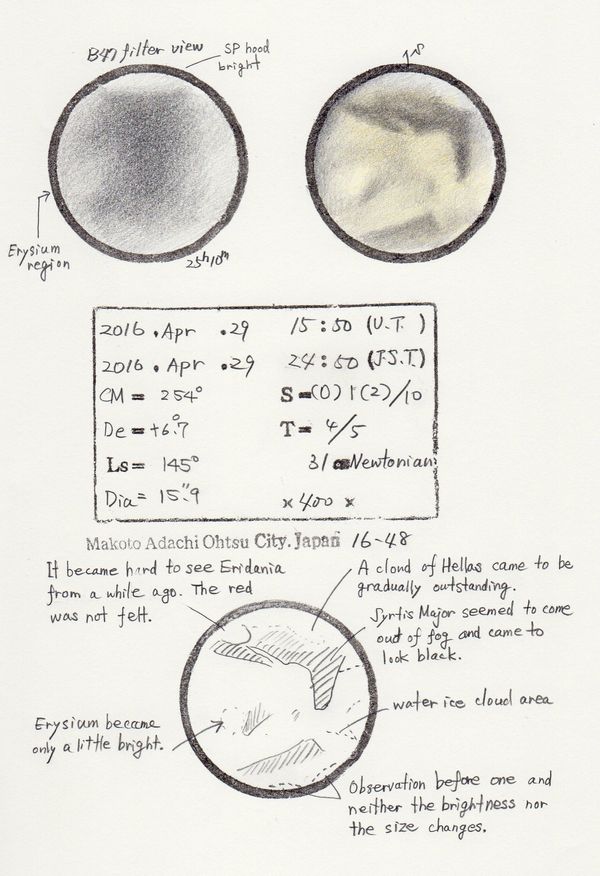 B47 filter view
SP hood
bright
↑S
Erysium
region
25h10m
2016 . Apr . 29 15 : 50 (U.T.)
2016 . Apr . 29 24 : 50 (J.S.T.)
CM = 254° S = (0) 1 (2)/10
De = +6.°7 T = 4/5
Ls = 145° 31 Newtonian
Dia = 15."9 × 400 ×
Makoto Adachi Ohtsu City. Japan 16-48
It became hard to see Eridania
from a while ago. The red
was not felt.
A cloud of Hellas came to be
gradually outstanding.
Syrtis Major seemed to come
out of fog and came to
look black.
water ice cloud area
Erysium became
only a little bright.
Observation before one and
neither the brightness nor
the size changes.